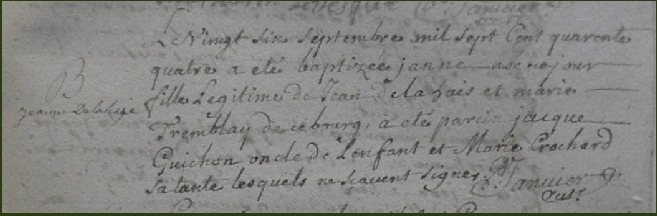 Le Vingt six septembre mil sept Cent quarente
quatre a eté baptizée janne née ce jour
fille Legitime de Jean delahais et marie
B
jeanne Delahaye
Tremblay de ce bourg, a eté parein jacque
Guichon oncle de L'enfant et Marie Crochard
sa tante lesquels ne scavent signer
Janvier